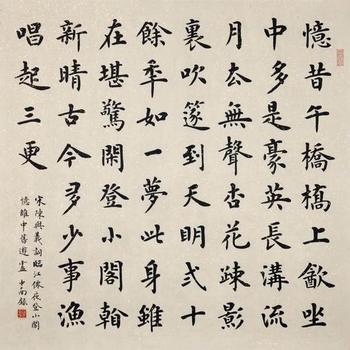 憶昔午橋橋上飲坐
中多是豪英長溝流
月去無聲杏花疎影
裏吹篴到天明弍十
餘年如一夢此身雖
在堪驚閑登小閣看
新晴古今多少事漁
唱起三更
宋陳與義詞臨江僊夜登小閣
憶雒中舊遊